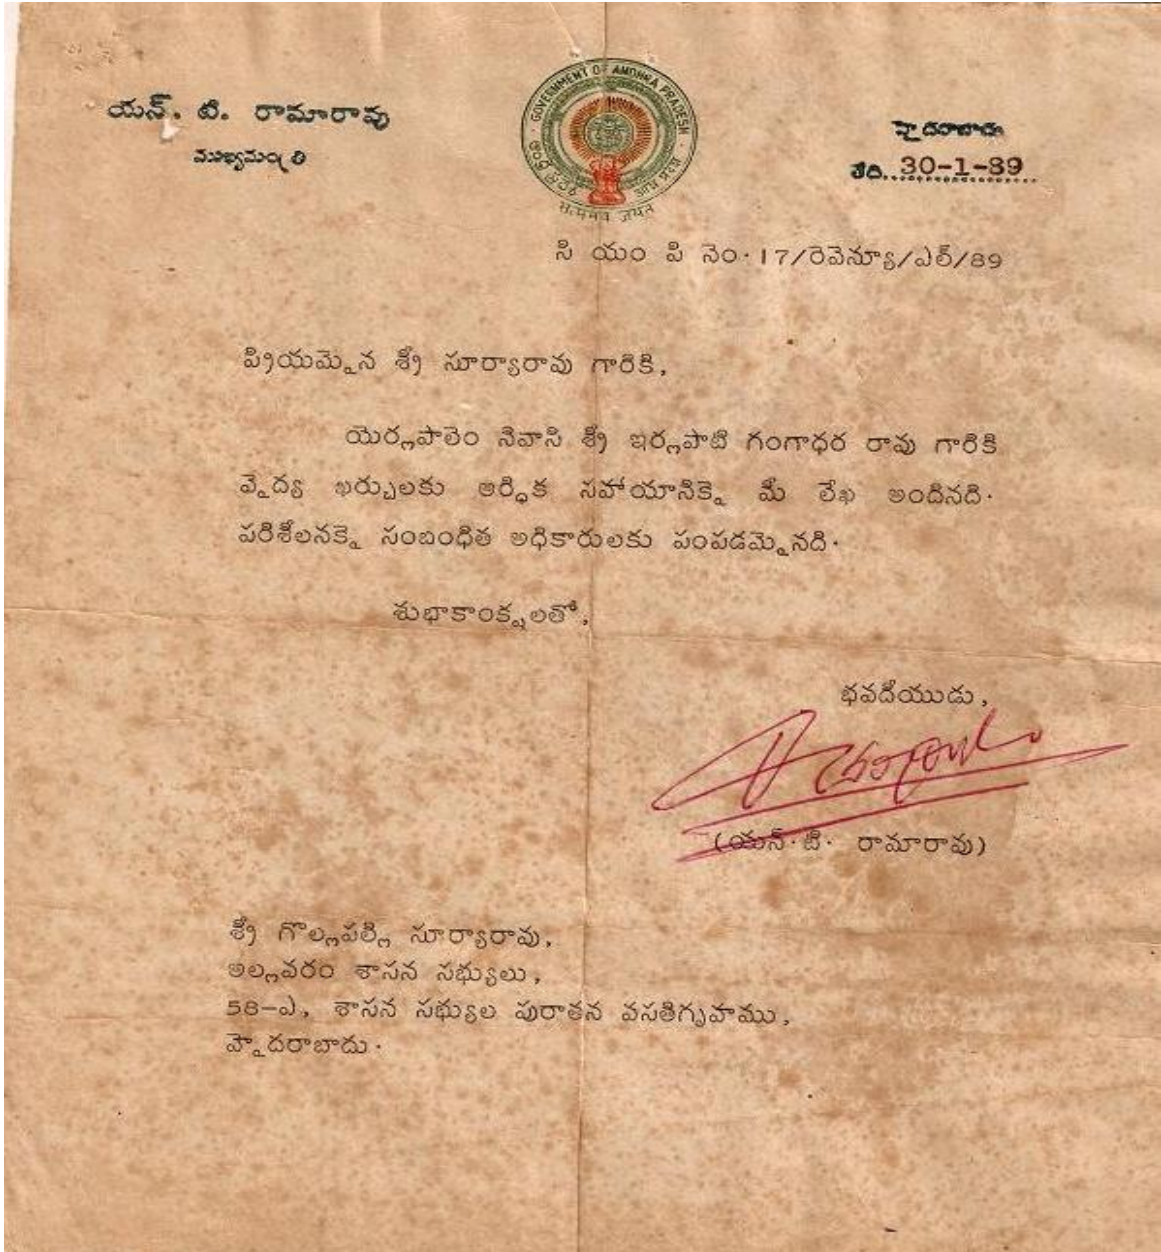 యన్. టి. రామారావు
ముఖ్యమంత్రి
GOVERNMENT OF ANDHRA PRADESH
ఆంధ్ర ప్రదేశ్
आन्ध्र प्रदेश
सत्यमेव जयते
హైదరాబాదు
తేది..30-1-89
సి యం పి నెం. 17/రెవెన్యూ/ఎల్/89
ప్రియమైన శ్రీ సూర్యారావు గారికి,
యెర్లపాలెం నివాసి శ్రీ ఇర్లపాటి గంగాధర రావు గారికి
వైద్య ఖర్చులకు ఆర్ధిక సహాయానికై మీ లేఖ అందినది.
పరిశీలనకై సంబంధిత అధికారులకు పంపడమైనది.
శుభాకాంక్షలతో,
భవదీయుడు,
(యన్.టి. రామారావు)
శ్రీ గొల్లపల్లి సూర్యారావు,
అల్లవరం శాసన సభ్యులు,
58-ఎ, శాసన సభ్యుల పురాతన వసతిగృహము,
హైదరాబాదు.